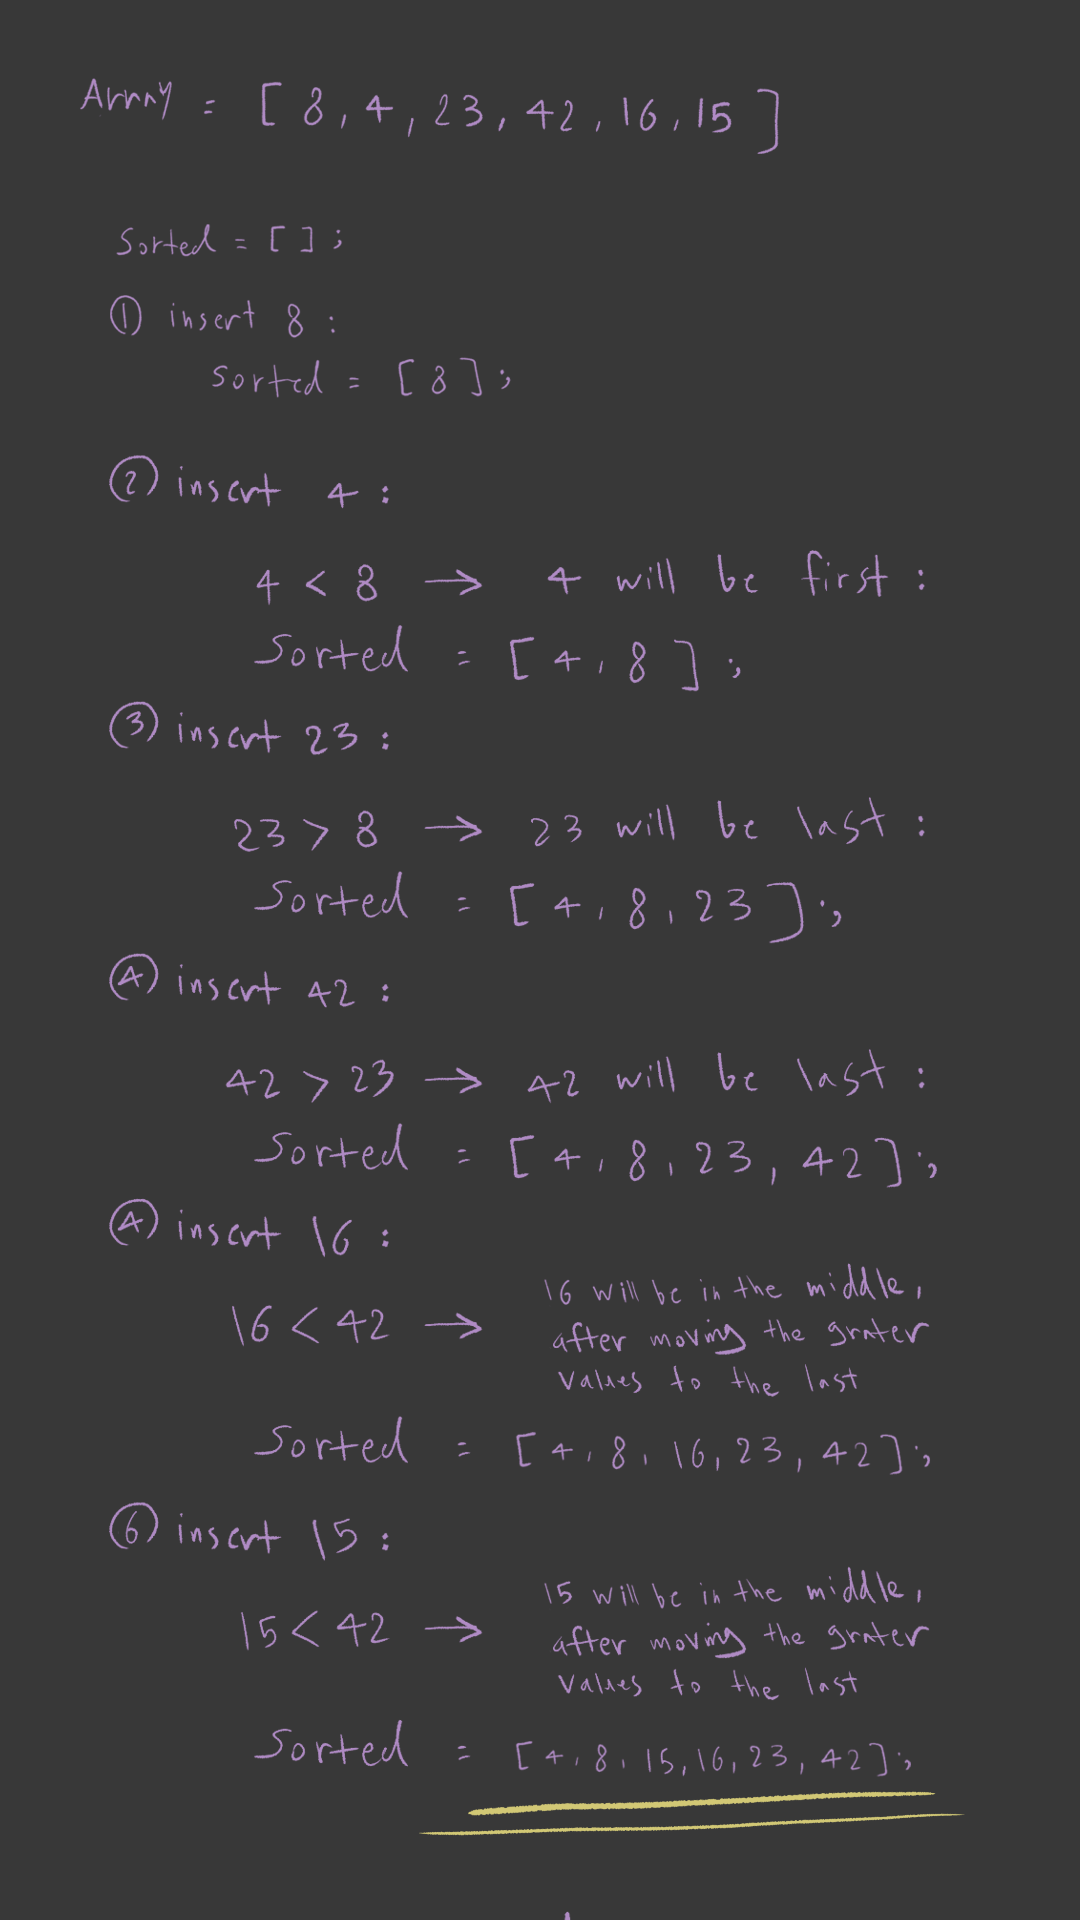 Array = [ 8, 4, 23, 42, 16, 15 ]
Sorted = [ ] ;
① insert 8 :
Sorted = [ 8 ] ;
② insert 4 :
4 < 8 → 4 will be first :
Sorted = [ 4, 8 ] ;
③ insert 23 :
23 > 8 → 23 will be last :
Sorted = [ 4, 8, 23 ] ;
④ insert 42 :
42 > 23 → 42 will be last :
Sorted = [ 4, 8, 23, 42 ] ;
④ insert 16 :
16 will be in the middle,
16 < 42 → after moving the grater
values to the last
Sorted = [ 4, 8, 16, 23, 42 ] ;
⑥ insert 15 :
15 will be in the middle,
15 < 42 → after moving the grater
values to the last
Sorted = [ 4, 8, 15, 16, 23, 42 ] ;